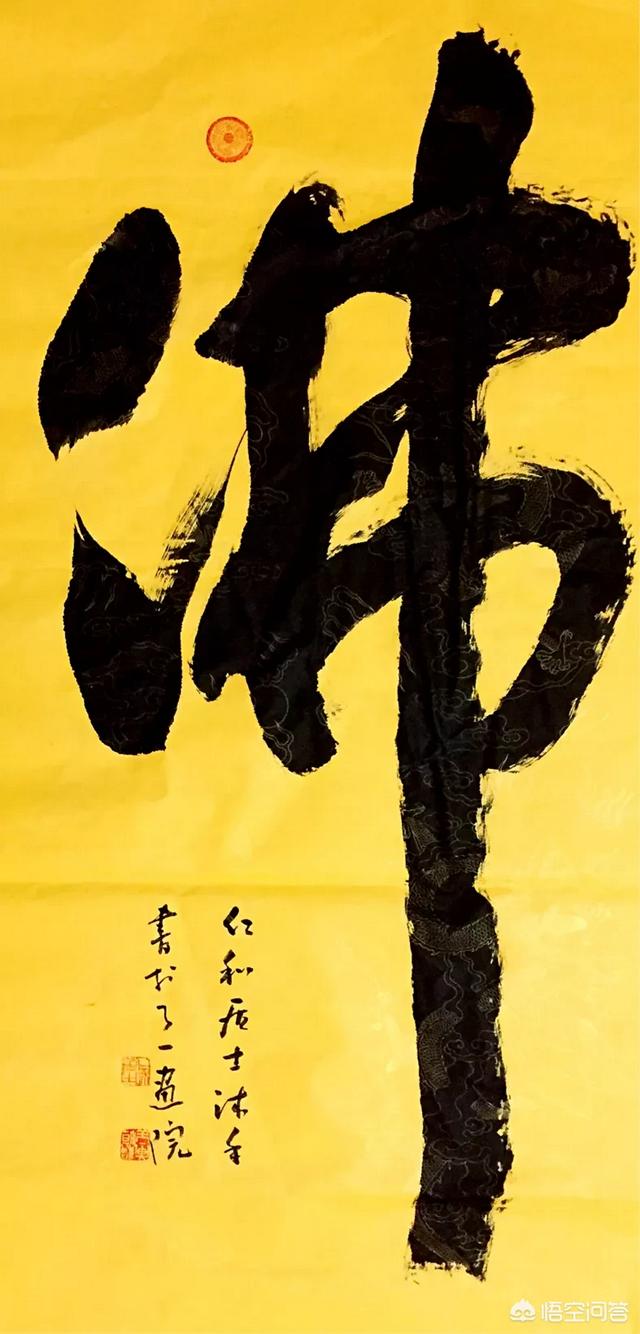 佛
仁和居士沐手
書於了一畫院
悟空问答